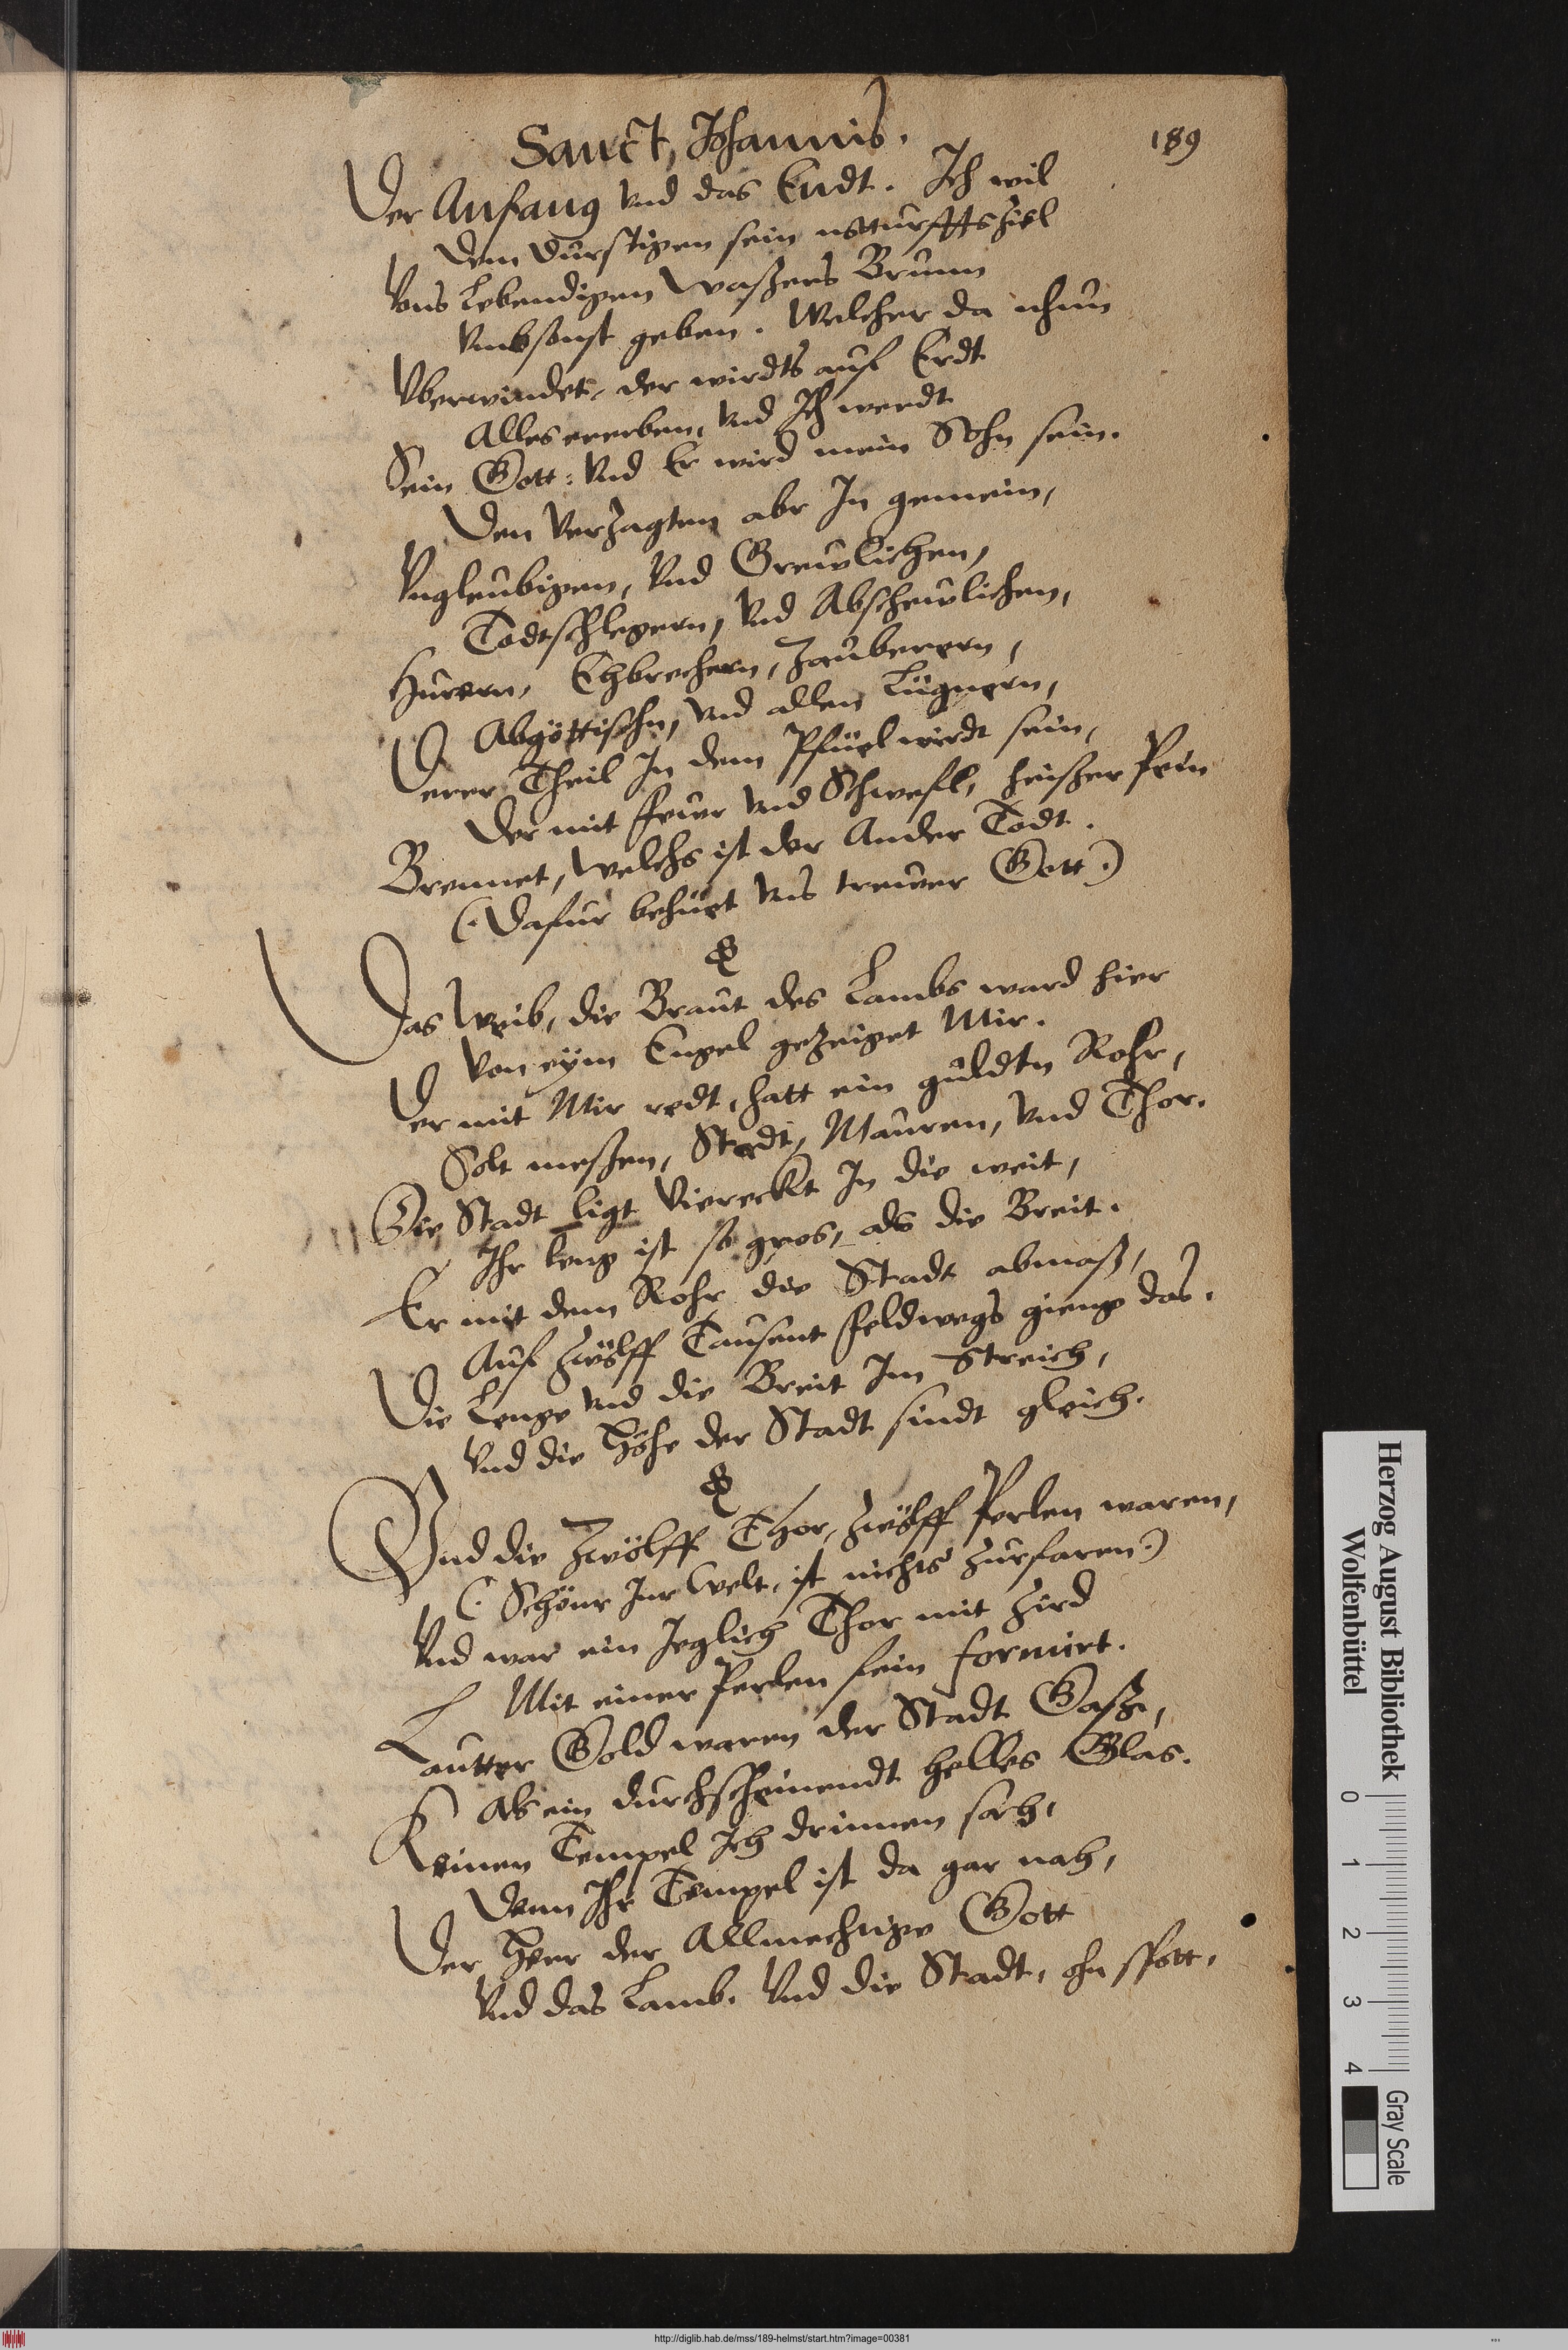 Sanct, Johannis.
189
Der Anfang vnd das Endt. Ich wil
Dem Durstigen sein notturfft Ziel
Vons Lebendigen Waßers Brunn
Vmbsonst geben. Welcher da nhun
Vberwindet, der wirdts auf Erdt
Alles ererben, vnd Ich werdt
Sein Gott: Vnd Er wird mein Sohn sein.
Den Verzagten abr In gemein,
Vngleubigen, Vnd Grewlichen,
Todtschlegern, Vnd Abschewlichen,
Hurern, Ehbrechern, Zauberern,
Abgöttischn, vnd allen Lügnern,
Derer Theil In dem Pfuel wirdt sein,
Der mit ffewr vnd Schwefl, heißer Pein
Brennet, Welchs ist der Ander Todt.
(Dafur behüet vns trewer Gott.)
Das Weib, die Braut des Lambs ward hier
Von eym Engel gezeiget Mir.
Der mit Mir redt, hatt ein güldtn Rohr,
Solt meßen, Stadt, Mauren, vnd Thor.
Die Stadt ligt Viereckt In die weit,
Ihr leng ist so gros, als die Breit.
Er mit dem Rohr die Stadt abmaß,
Auf Zwölff Tausent ffeldwegs gieng das.
Die Lenge vnd die Breit Im Streich,
Vnd die Höhe der Stadt sindt gleich.
Vnd die Zwölff Thor, Zwölff Perlen waren,
(Schönr Inr Welt, ist nichts Zurfaren.)
Vnd war ein Jeglich Thor mit Zird
Mit einer Perlen fein formirt.
Lautter Gold waren der Stadt Gaße,
Als ein durchscheinendt helles Glas.
Keinen Tempel Ich drinnen sach,
Denn Ihr Tempel ist da gar nah,
Der Herr der Allmechtige Gott
Vnd das Lamb. Vnd die Stadt, ohn spott.
Herzog August Bibliothek
Wolfenbüttel
0 1 2 3 4
Gray Scale
http://diglib.hab.de/mss/189-helmst/start.htm?image=00381